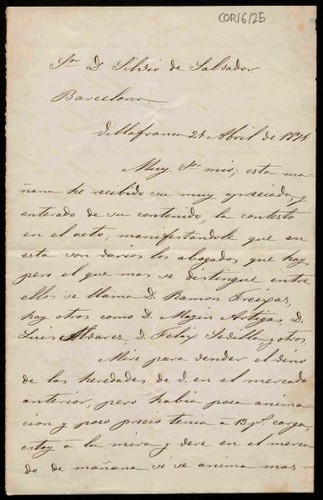 COR/6/25
Sor D. Silvio de Salvador
Barcelona
Villafranca 24 Abril de
Muy Sr mio; esta ma-
ñana he recibido su muy apreciada, y
enterado de su contenido, la contesto
en el acto, manifestandole que en
esta son varios los abogados que hay,
pero el que mas se distingue entre
ellos se llama D. Ramon Freixas,
hay otros como D. Magin Artigas, D.
Luis Alvarez, D. Felix Sedilla y otros.
Mire para vender el vino
de las heredades de V. en el mercado
anterior, pero habia poca anima
cion y poco precio tenia a 13 pts carga,
estoy a la mira y vere en el merca
do de mañana si se anima mas